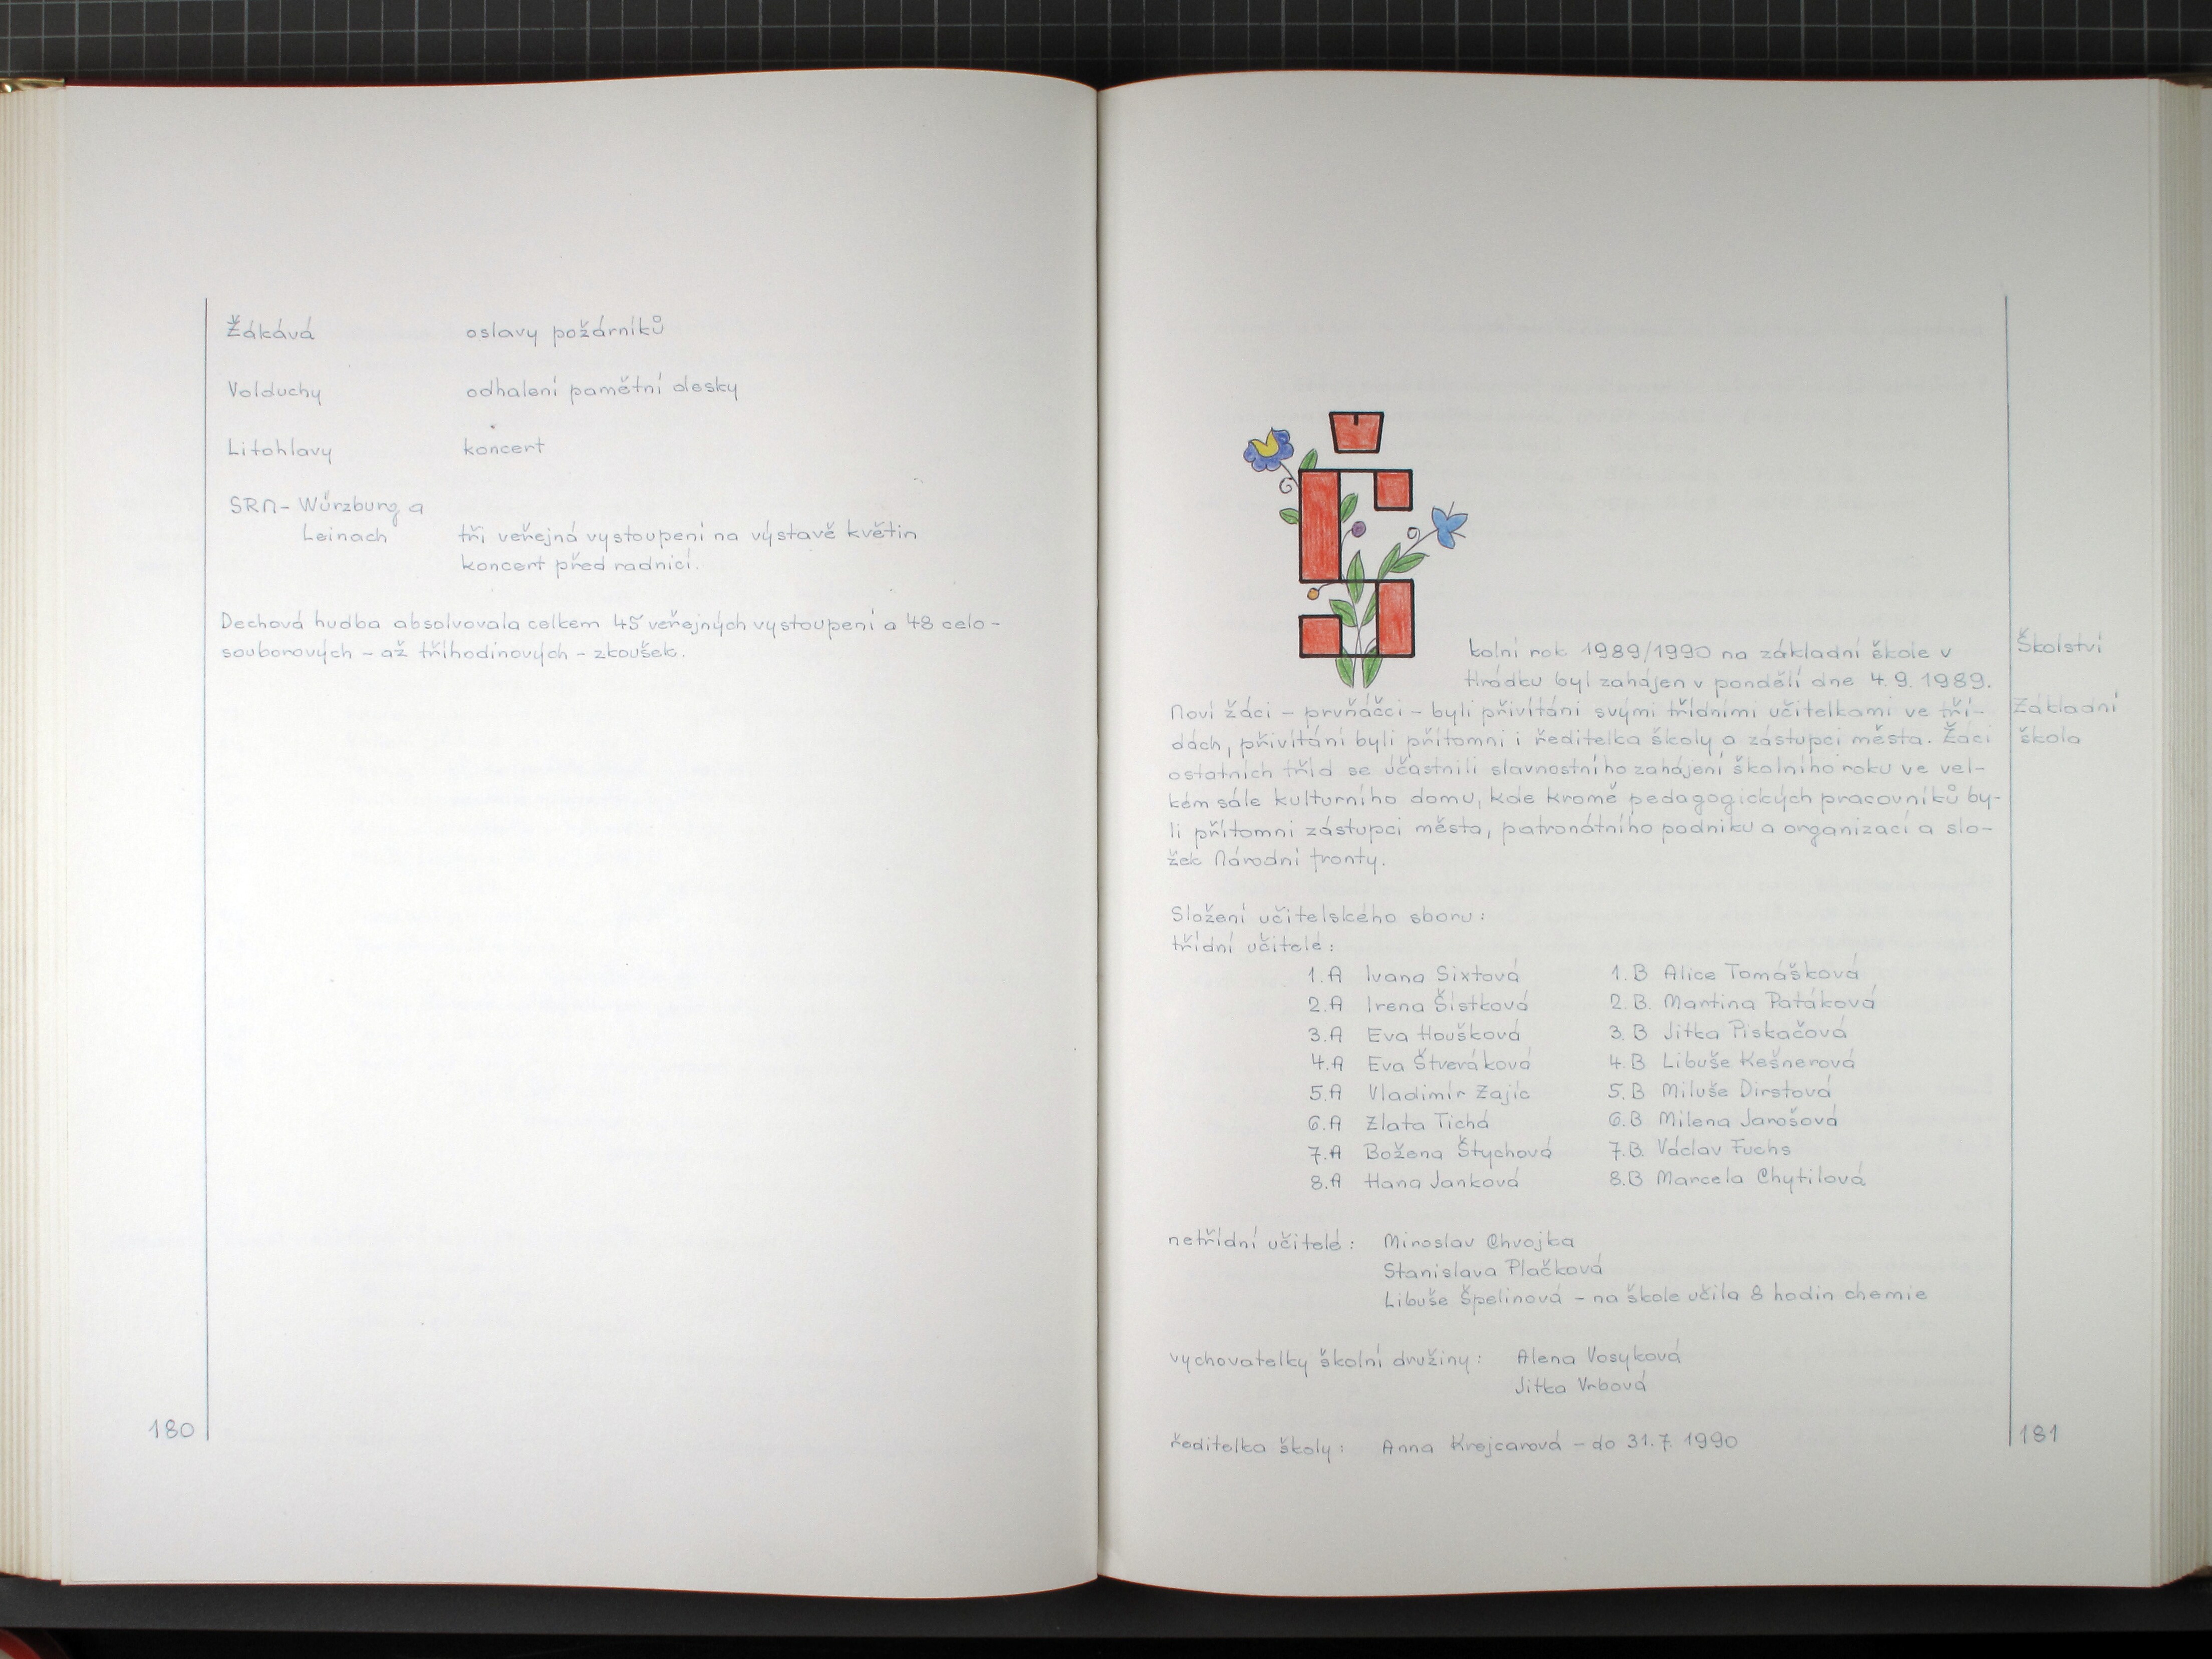 Žákává oslavy požárníků
Volduchy odhalení pamětní desky
Litohlavy koncert
SRN - Würzburg a
Leinach tři veřejná vystoupení na výstavě květin
koncert před radnicí.
Dechová hudba absolvovala celkem 45 veřejných vystoupení a 48 celo-
souborových - až tříhodinových - zkoušek.
180
Školní rok 1989/1990 na základní škole v
Hrádku byl zahájen v pondělí dne 4. 9. 1989.
Noví žáci - prvňáčci - byli přivítáni svými třídními učitelkami ve tří-
dách, přivítání byli přítomni i ředitelka školy a zástupci města. Žáci
ostatních tříd se účastnili slavnostního zahájení školního roku ve vel-
kém sále kulturního domu, kde kromě pedagogických pracovníků by-
li přítomni zástupci města, patronátního podniku a organizací a slo-
žek Národní fronty.
Školství
Základní
škola
Složení učitelského sboru:
třídní učitelé:
1.A Ivana Sixtová 1.B Alice Tomášková
2.A Irena Šístková 2.B. Martina Patáková
3.A Eva Houšková 3.B Jitka Piskačová
4.A Eva Štveráková 4.B Libuše Kešnerová
5.A Vladimír Zajíc 5.B Miluše Dirstová
6.A Zlata Tichá 6.B Milena Jarošová
7.A Božena Štychová 7.B. Václav Fuchs
8.A Hana Janková 8.B Marcela Chytilová
netřídní učitelé: Miroslav Chvojka
Stanislava Plačková
Libuše Špelinová - na škole učila 8 hodin chemie
vychovatelky školní družiny: Alena Vosyková
Jitka Vrbová
ředitelka školy: Anna Krejcarová - do 31. 7. 1990
181